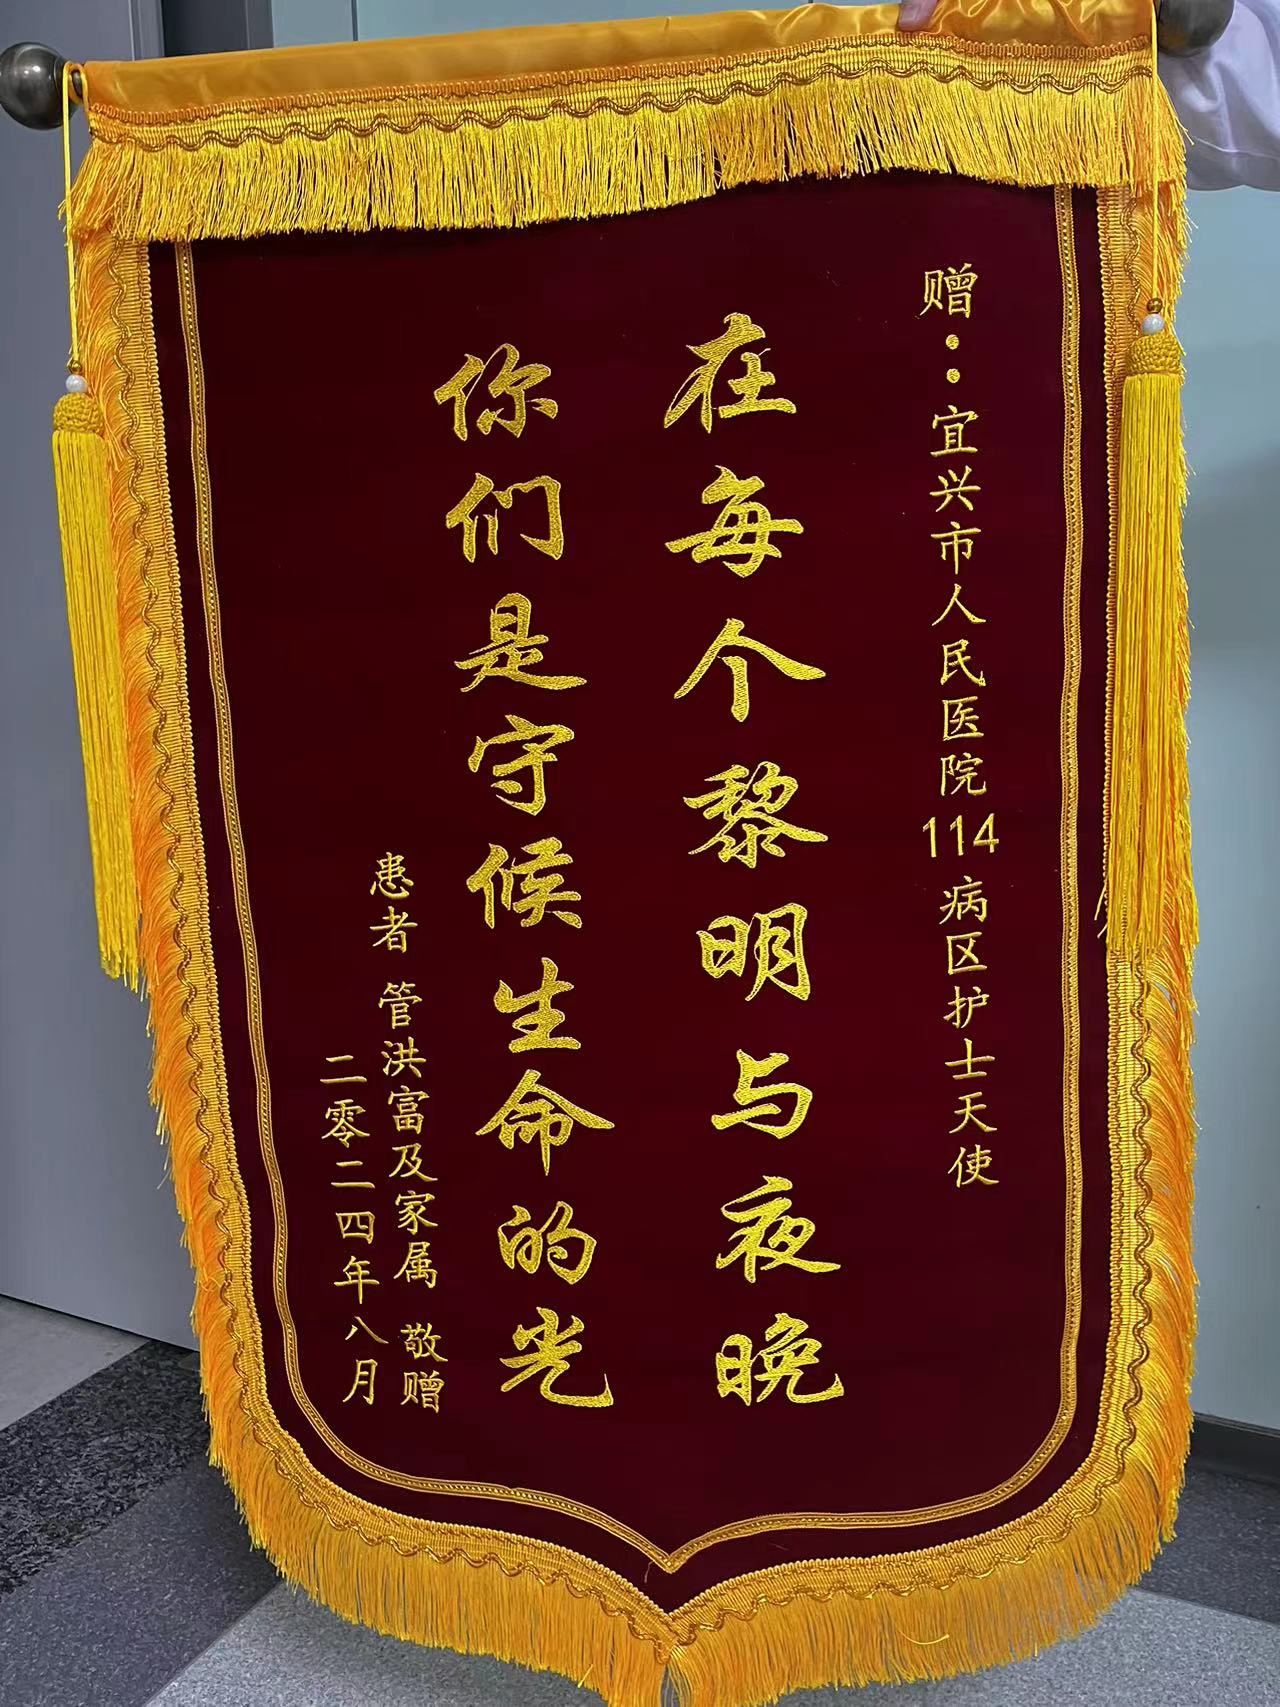 赠：宜兴市人民医院114病区护士天使
在每个黎明与夜晚
你们是守候生命的光
患者 管洪富及家属 敬赠
二零二四年八月